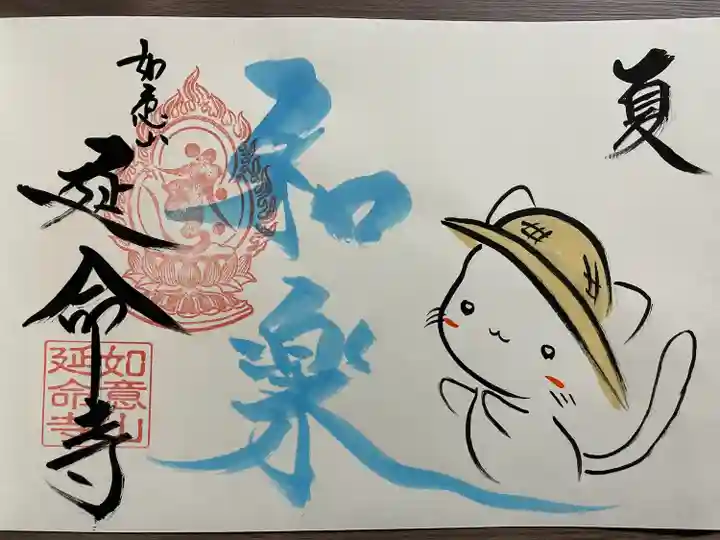 夏
和楽
如意山
延命寺
如意山
延命寺